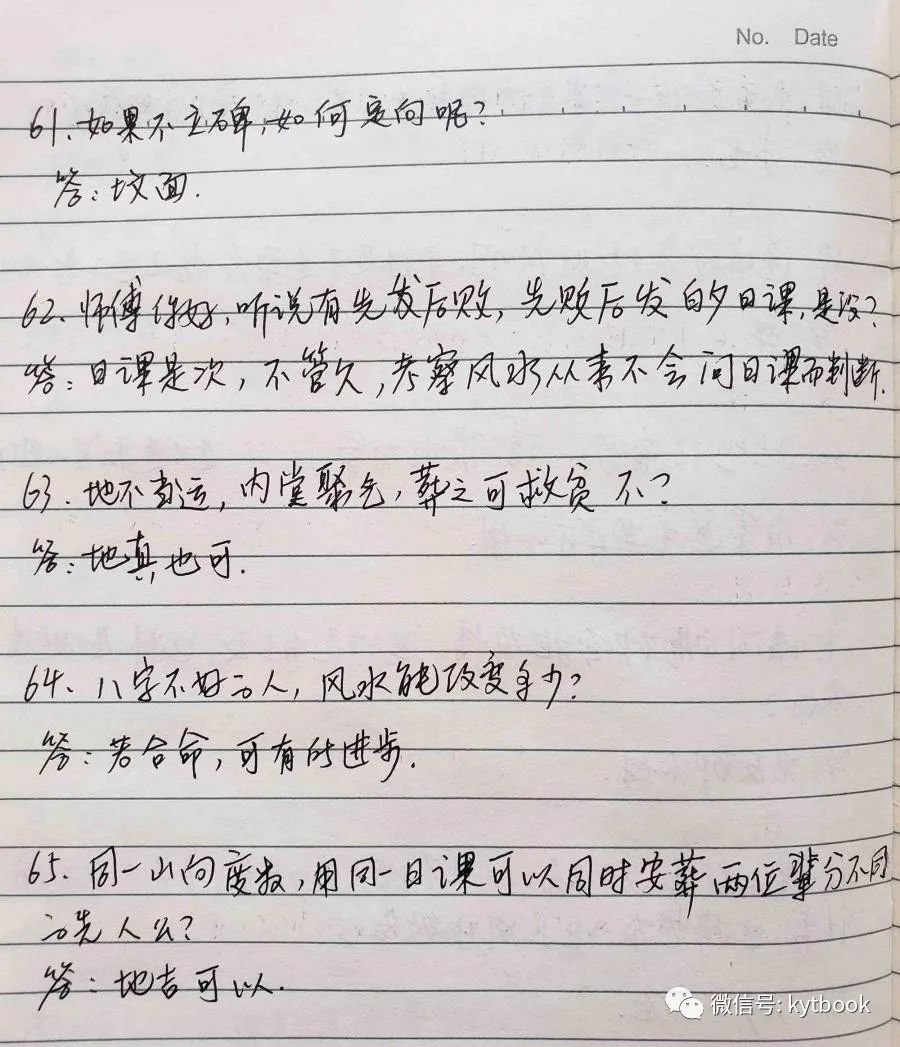 No. Date
61. 如果不立碑,如何定向呢?
答:坟面.
62、师傅你好,听说有先发后败,先败后发的日课,是没?
答:日课是次,不管久,考察风水从来不会问日课而判断.
63. 地不当运,内堂聚气,葬之可救贫不?
答:地真也可.
64、八字不好的人,风水能改变多少?
答:若合命,可有所进步.
65. 同一山向度数,用同一日课可以同时安葬两位辈分不同
的先人公?
答:地吉可以.
微信号: kytbook